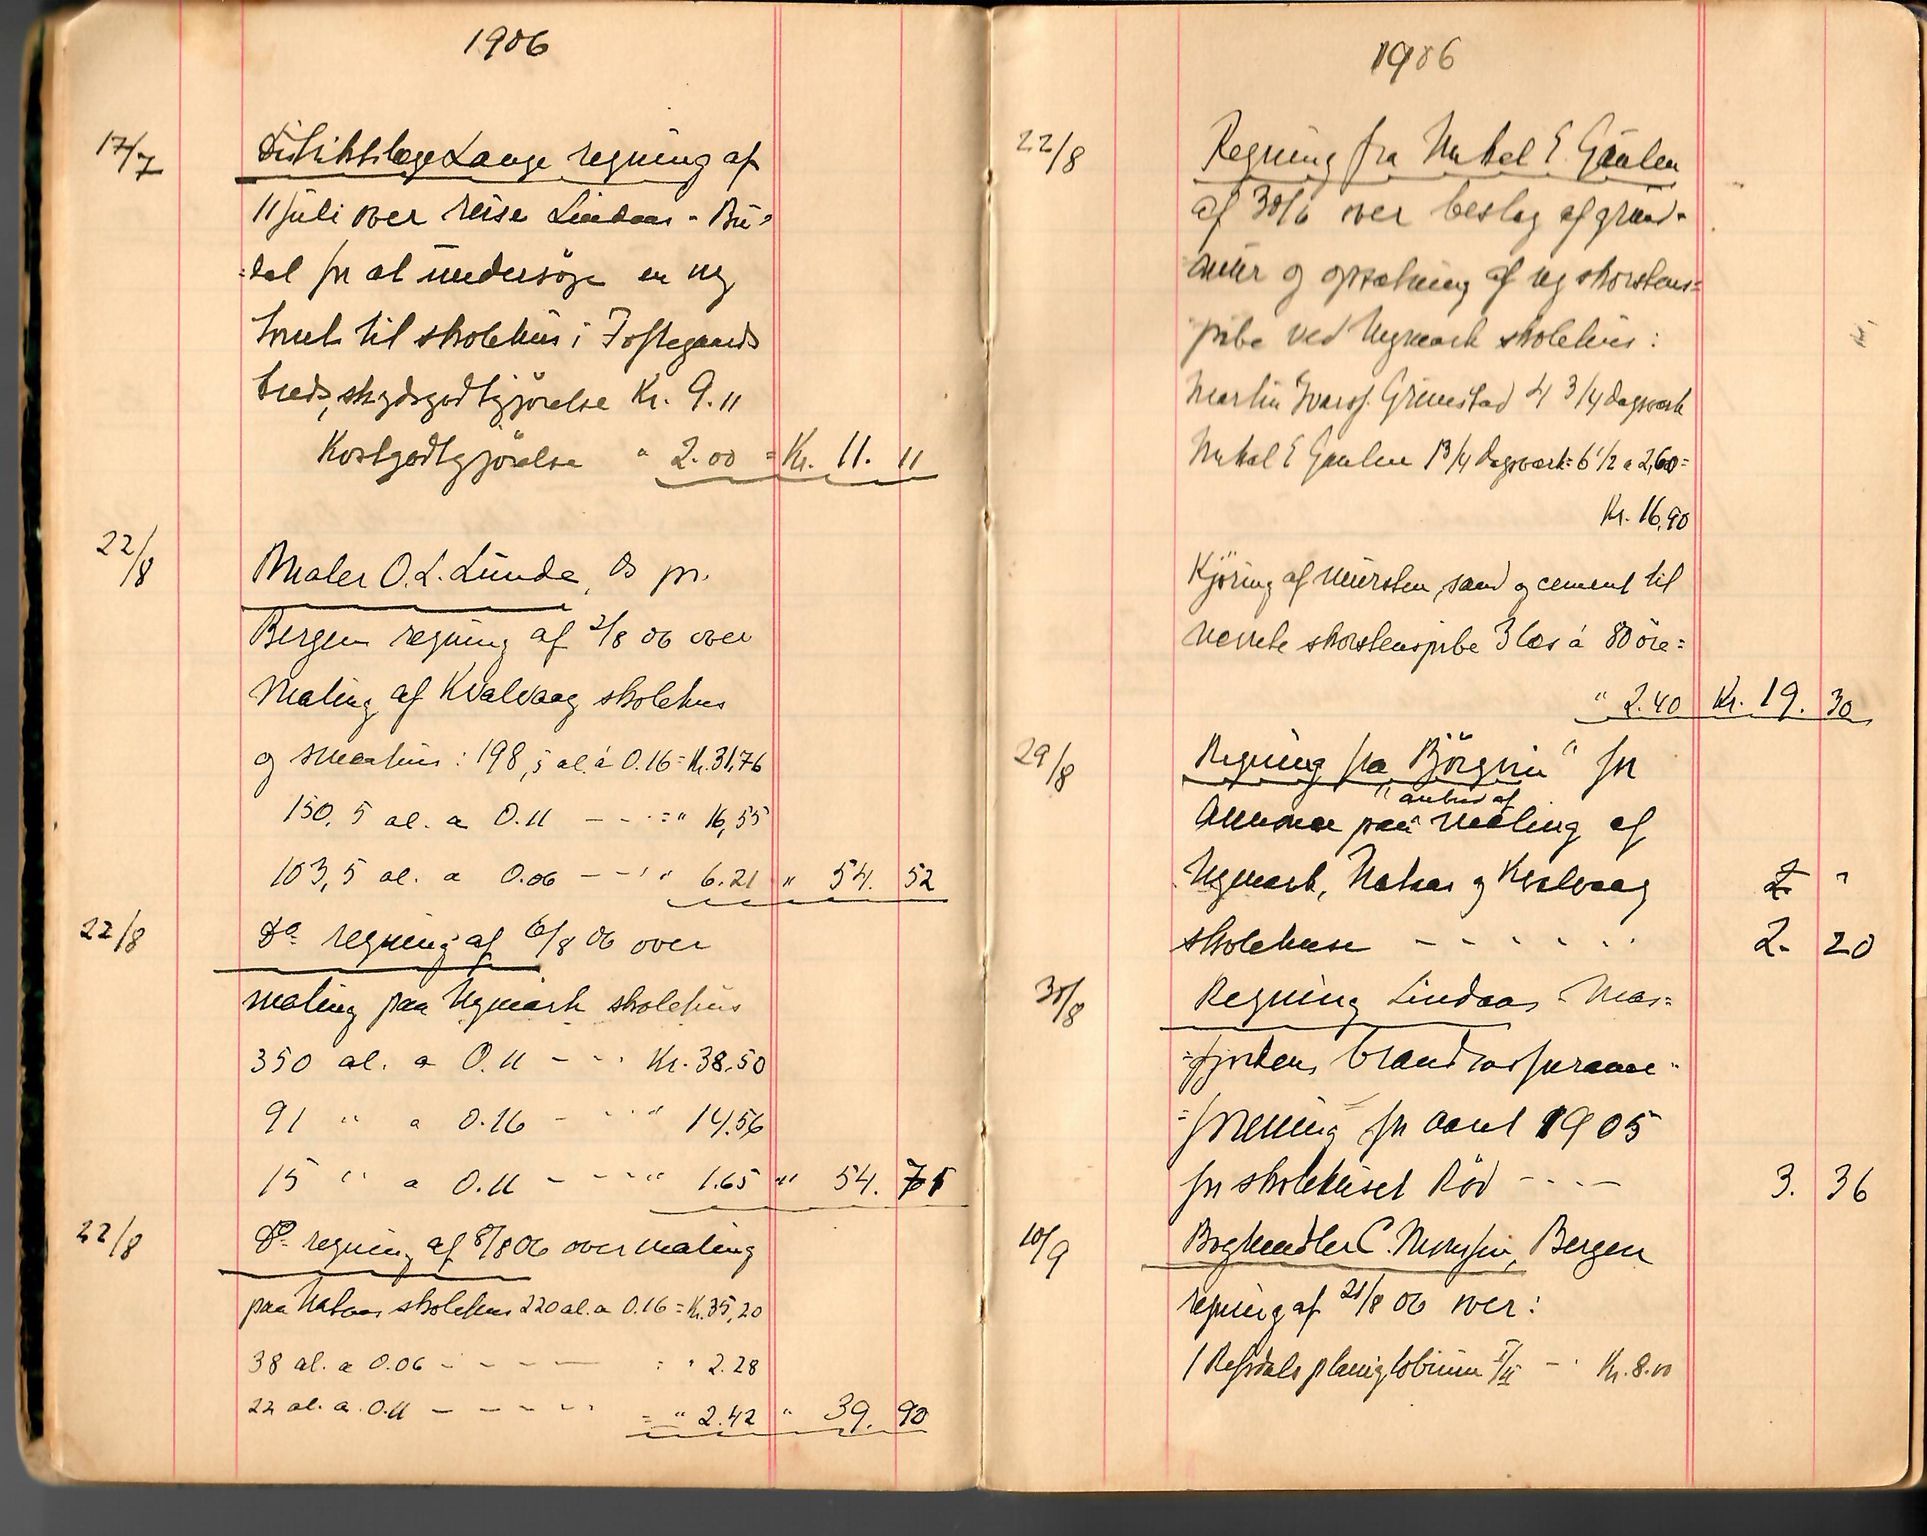 1906
17/7
Distriktslæge Lange regning af
11 juli over reise Lindaas - Bu-
=dal for at undersöge en ny
tomt til skolehus i Fostegaards
kreds, skydsgodtgjörelse Kr. 9.11
Kostgodtgjörelse " 2.00 = Kr. 11. 11
22/8
Maler O. L. Lunde, Os pr.
Bergen regning af 2/8 06 over
Maling af Kvalvaag skolehus
og smaahus: 198,5 al. á 0.16 = Kr. 31,76
150,5 al. a 0.11 - - - = " 16,55
103,5 al. a 0.06 - - - " 6.21 " 54. 52
22/8
Do regning af 6/8 06 over
maling paa Nymark skolehus
350 al. a 0.11 - - - Kr. 38.50
91 " a 0.16 - - - " 14.56
15 " a 0.11 - - - " 1.65 " 54. 71
22/8
Do regning af 8/8 06 over maling
paa Nataas skolehus 220 al. a 0.16 = Kr. 35,20
38 al. a 0.06 - - - - : " 2.28
22 al. a 0.11 - - - - = " 2.42 " 39. 90
1906
22/8
Regning fra Mikal E. Gaulen
af 30/6 over beslag af grund-
muur og opsætning af ny skorstens=
pibe ved Nymark skolehus:
Martin Ivarsf. Grimstad 4 3/4 dagsværk
Mikal E Gaulen 1 3/4 dagsværk = 6 1/2 a 2,60 =
Kr. 16,90
Kjöring af mursten, sand og cement til
nævnte skorstenspibe 3 læs á 80 öre =
" 2.40 Kr. 19. 30
29/8
Regning fra "Björgvin" for
anbud af
Annonce paa maling af
Nymark, Nataas og Kvalvaag 2 "
skolehuse - - - - - - 2. 20
30/8
Regning Lindaas - Mas=
=fjorden brandassurance-
=forening for aaret 1905
for skolehuset Röd - - - - 3. 36
10/9
Boghandler C. Monssen, Bergen
regning af 21/8 06 over:
1 Refsdals planiglobium I/II - - Kr. 8.00